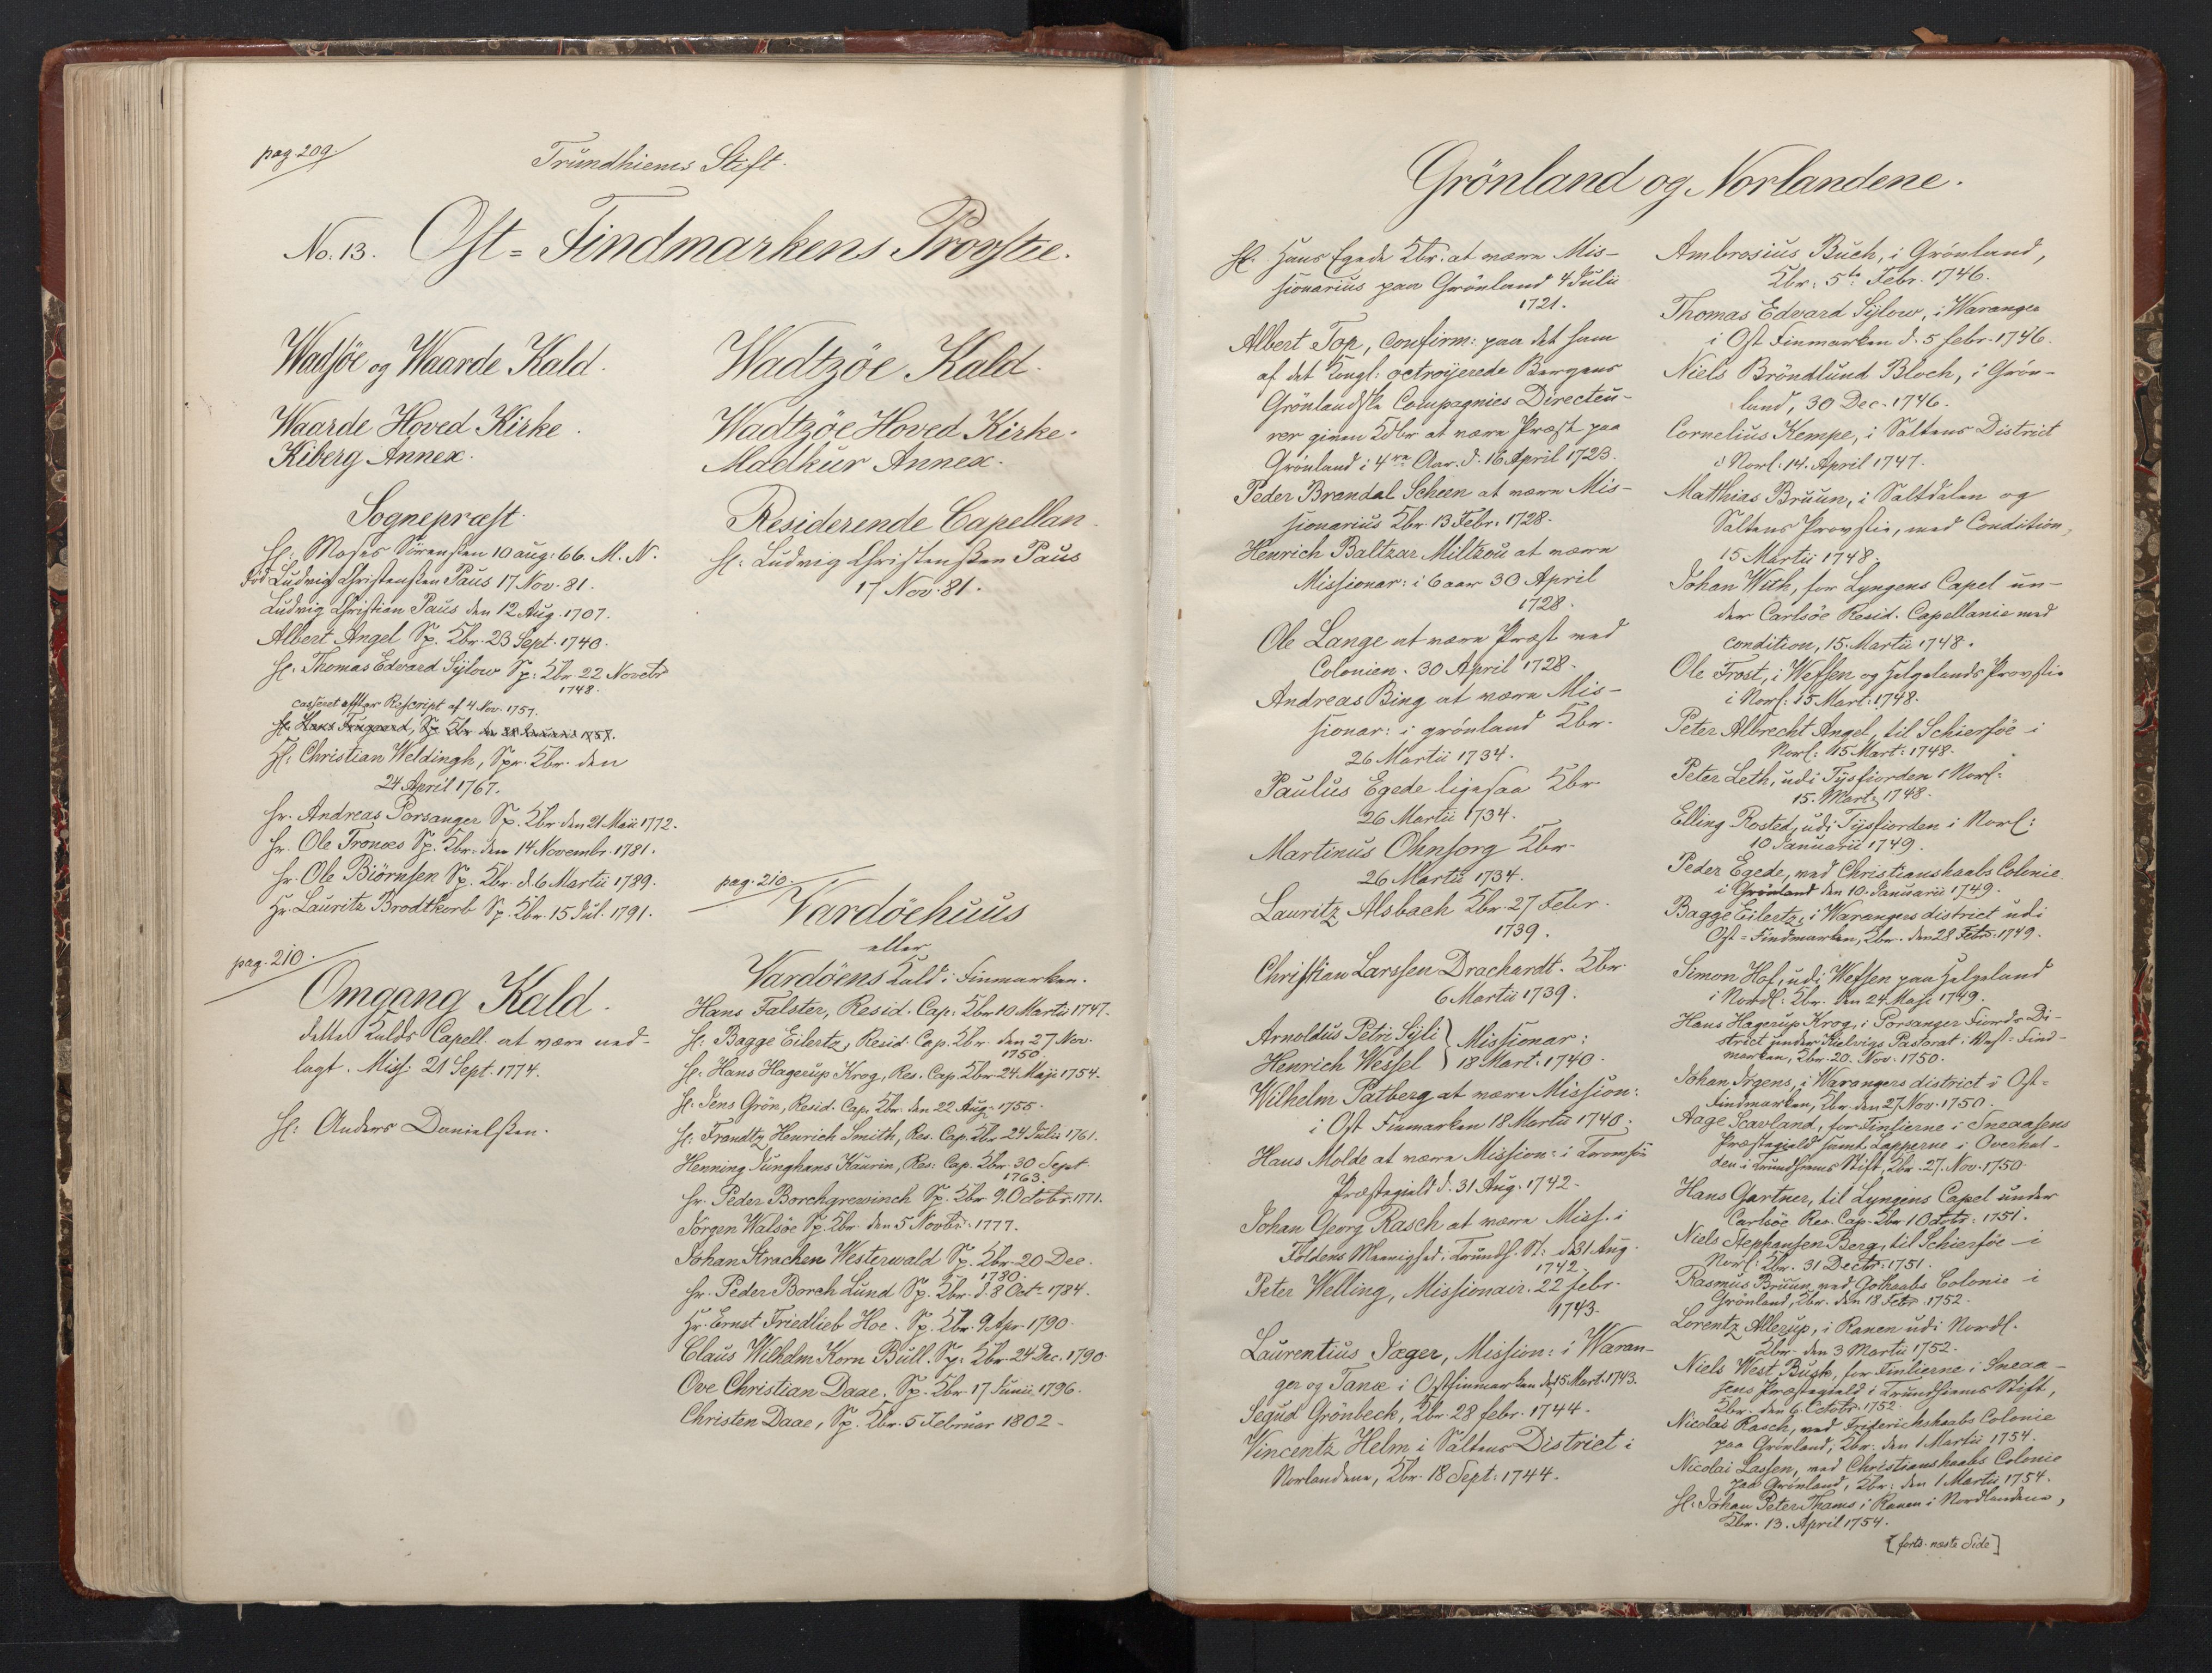 pag. 209.
Trundhiems Stift.
No. 13. Ost = Findmarkens Provstie.
Wadsöe og Waarde Kald.
Waarde Hoved Kirke.
Kiberg Annex.
Sognepræst.
H: Moses Sörenssen 10 aug: 66. M. N.
Ludvig Christenssen Paus 17 Nov. 81.
Ludvig Christian Paus den 12 Aug. 1707.
Albert Angel Sp. Kbr. 23 Sept. 1740.
H: Thomas Edvard Sylow Sp: Kbr. 22 Novebr
1748.
casseret effter Rescript af 4 Nov. 1757.
H: Christian Weldingh, Spr. Kbr. den
24 April 1767.
Hr. Andreas Porsanger Sp. Kbr den 21 Maii 1772.
Hr. Ole Tronæs Sp. Kbr. den 14 Novembr. 1781.
Hr. Ole Biörnsen Sp. Kbr. d. 6 Martii 1789.
Hr. Lauritz Brodtkorb Sp. Kbr. 15 Jul. 1791.
pag. 210.
Omgang Kald.
dette Kalds Capell. at være ned-
lagt. Miss: 21 Sept. 1774.
H: Anders Danielssen.
Wadtzöe Kald.
Wadtzöe Hoved Kirke.
Madkur Annex.
Residerende Capellan.
H: Ludvig Christenssen Paus
17 Nov. 81.
pag. 210.
Vardöehuus
eller
Vardöens Kald i Finmarken.
Hans Falster, Resid. Cap: Kbr 10 Martii 1747.
H: Bagge Eilertz, Resid. Cap. Kbr. den 27 Nov.
1750.
H: Hans Hagerup Krog, Res. Cap. Kbr. 24 Maji 1754.
H: Jens Grön, Resid. Cap. Kbr. den 22 Aug. 1755.
H: Frandtz Henrich Smith, Res. Cap. Kbr 24 Julii 1761.
Henning Junghans Kaurin, Res: Cap. Kbr. 30 Sept.
1763.
Hr. Peder Borchgrewinch Sp. Kbr 9. Octobr. 1771.
Jörgen Walsöe Sp. Kbr. den 5 Novbr: 1777.
Johan Strachen Westerwald Sp. Kbr. 20 Dec.
1780.
Hr. Peder Borch Lund Sp. Kbr. d. 8 Octr. 1784.
Hr. Ernst Friedlieb Hoe. Sp. Kbr. 9 Apr. 1790.
Claus Wilhelm Korn Bull. Sp: Kbr. 24 Dec. 1790.
Ove Christian Daae. Sp. Kbr. 17 Junii 1796.
Christen Daae, Sp. Kbr. 5 Februar 1802.
Grönland og Norlandene.
H. Hans Egede Kbr. at være Mis-
sionarius paa Grönland 4 Julii
1721.
Albert Top, confirm: paa det ham
af det Kongl: octroyerede Bergens
Grönlandske Compagnies Directeu-
rer given Kldbr at være Præst paa
Grönland i 4re Aar. d. 16 April 1723.
Peder Brandal Scheen at være Mis-
sionarius Kbr. 13 Febr. 1728.
Henrich Baltzar Miltzou at være
Missionar: i 6 aar 30 April
1728.
Ole Lange at være Præst med
Colonien. 30 April 1728.
Andreas Bing at være Mis-
sionar: i grönland Kbr.
26 Martii 1734.
Paulus Egede ligesaa Kbr.
26 Martii 1734.
Martinus Ohnsorg Kbr.
26 Martii 1734.
Lauritz Alsbach Kbr. 27 Febr.
1739.
Christian Larssen Drachardt. Kbr.
6 Martii 1739.
Arnoldus Petri Sÿli } Missionar:
Henrich Wessel } 18 Mart. 1740.
Wilhelm Patberg at være Mission:
i Ost Finmarken 18 Martii 1740.
Hans Molde at være Mission: i Tromsöe
Præstegield d. 31 Aug. 1742.
Johan Georg Rasch at være Miss. i
Foldens Menighed i Trundh. St: d. 31 Aug.
1742.
Peter Welling, Missionair. 22 febr.
1743.
Laurentius Jæger, Mission: i Waran-
ger og Tanæ i Ostfinmarken d. 15 Mart. 1743.
Segud Grönbeck, Kbr. 28 febr. 1744.
Vincentz Helm i Saltens District i
Norlandene, Kbr. 18 Sept: 1744.
Ambrosius Buch, i Grönland,
Kbr. 5te Febr. 1746.
Thomas Edvard Sÿlow, i Waranger
i Ost Finmarken d. 5 febr. 1746.
Niels Bröndlund Bloch, i Grön-
land, 30 Dec. 1746.
Cornelius Kempe, i Saltens District
i Norl: 14. April 1747.
Matthias Bruun, i Saltdalen og
Saltens Provstie, med Condition,
15 Martii 1748.
Johan With, for Lyngens Capel un-
der Carlsöe Resid. Capellanie med
condition, 15. Martii 1748.
Ole Frost, i Wefsen og Helgelands Provstie
i Norl: 15 Mart: 1748.
Peter Albrecht Angel, til Schierföe i
Norl: 15 Mart: 1748.
Peter Leth, udi Tysfiorden i Norl:
15. Marti 1748.
Elling Rosted, udi Tysfiorden i Norl:
10 Januarii 1749.
Peder Egede, ved Christianshaabs Colonie
i Grönland den 10. Januarii 1749.
Bagge Eilertz, i Warangers district udi
Ost = Findmarken, Kbr. den 28 Febr. 1749.
Simon Hof, udi Wefsen paa Helgeland
i Nordl: Kbr. den 24 Maji 1749.
Hans Hagerup Krog, i Porsanger Fiords Di-
strict under Kielvigs Pastorat i West: Find-
marken, Kbr. 20. Nov. 1750.
Johan Irgens, i Warangers district i Ost-
Findmarken, Kbr. den 27 Nov. 1750.
Aage Scavland, for Finlierne i Sneaasens
Præstegield samt Lapperne i Overhal-
den i Trundhiems Stift, Kbr. 27. Nov. 1750.
Hans Gartner, til Lyngens Capel under
Carlsöe Res. Cap. Kbr 1 Octobr: 1751.
Niels Stephansen Berg, til Schierföe i
Norl: Kbr. 31 Decbr. 1751.
Rasmus Bruun, ved Gothaabs Colonie i
Grönland, Kbr. den 18 Febr. 1752.
Lorentz Allerup, i Ranen udi Nordl.
Kbr. den 3 Martii 1752.
Niels West Busk, for Finlierne i Sneaa-
sens Præstegield i Trundhiems Stift,
Kbr. den 6. Octobr. 1752.
Nicolai Rasch, ved Friderichshaabs Colonie
paa Grönland, Kbr. den 1 Martii 1754.
Nicolai Lassen, ved Christianshaabs Colonie
paa Grönland, Kbr. den 1 Martii 1754.
H: Johan Peter Thams i Ranen i Nordlandene,
Kbr. 13. April 1754.
[forts. næste Side]